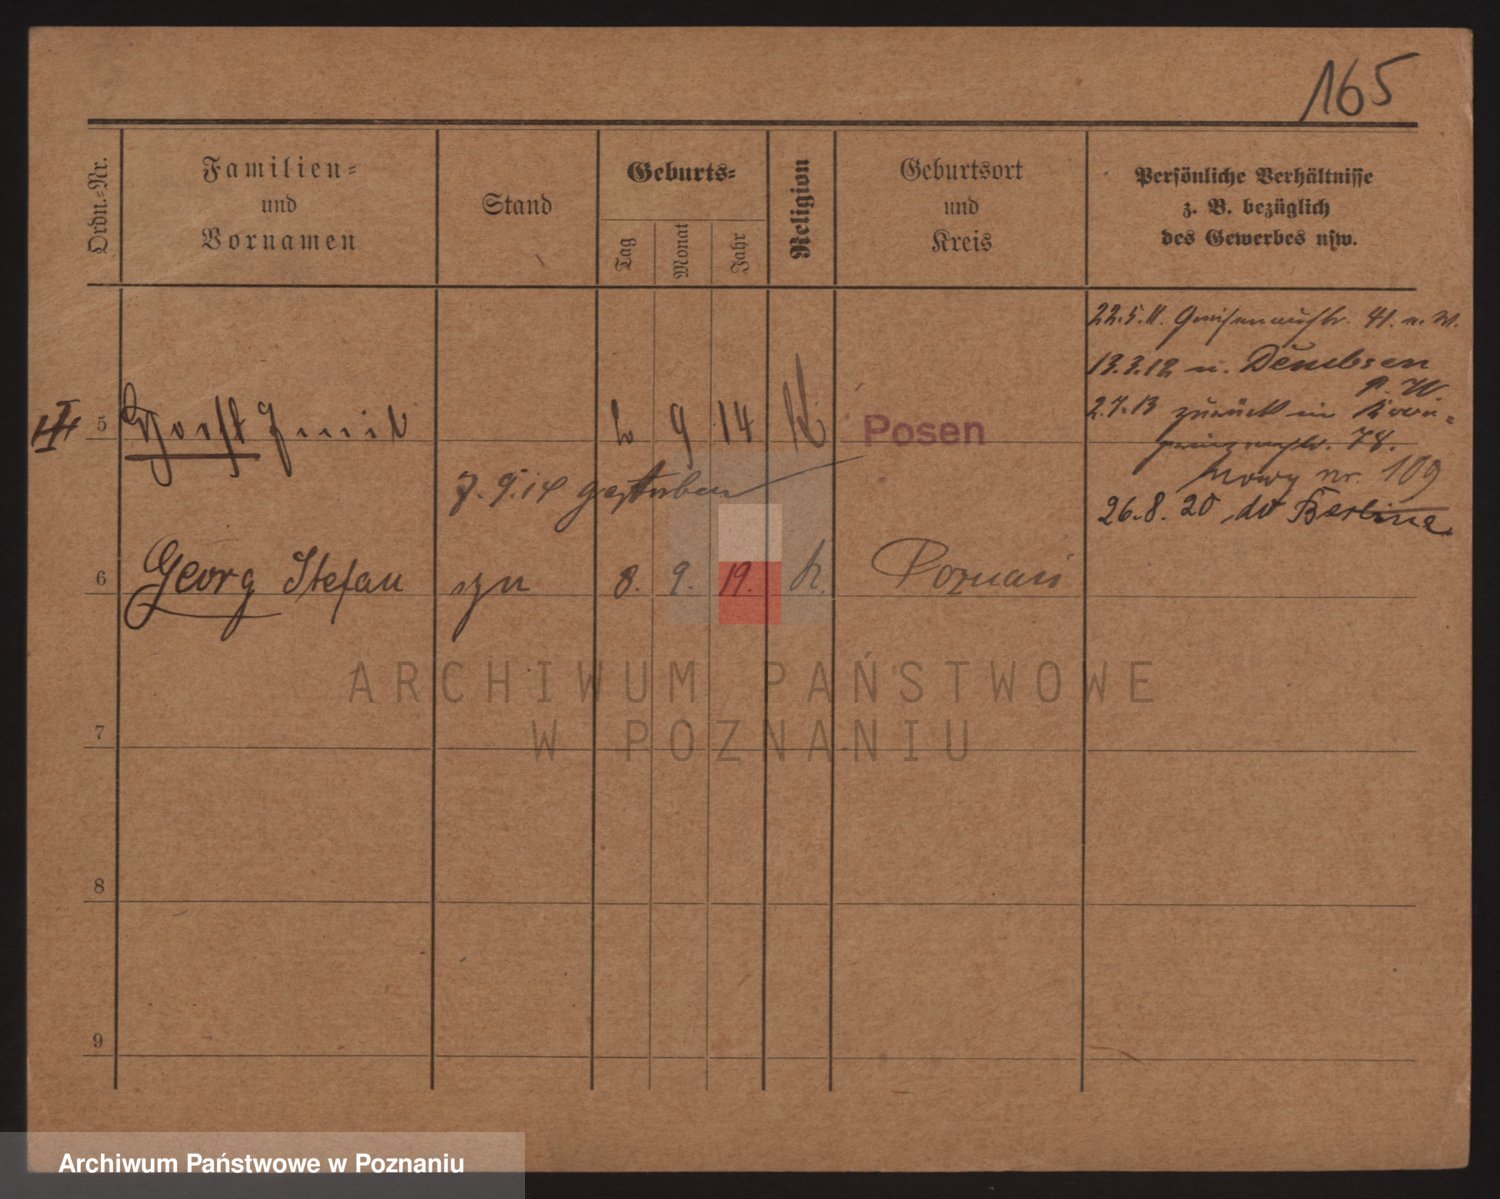 165
Ordn.-Nr.
Familien-
und
Vornamen
Stand
Geburts-
Tag
Monat
Jahr
Religion
Geburtsort
und
Kreis
Persönliche Verhältnisse
z. B. bezüglich
des Gewerbes usw.
22.5.11. Gneisenaustr. 41. n. W.
13.3.12 n. Dembsen
2.7.13 zurück in
78.
Nowy nr. 109
26.8.20 do Berlina
III
5 Horst 2 9 14 K Posen
7.9.14 gestorben
6 Georg Stefan syn 8. 9. 19. k. Poznań
7
8
9
ARCHIWUM PAŃSTWOWE
W POZNANIU
Archiwum Państwowe w Poznaniu